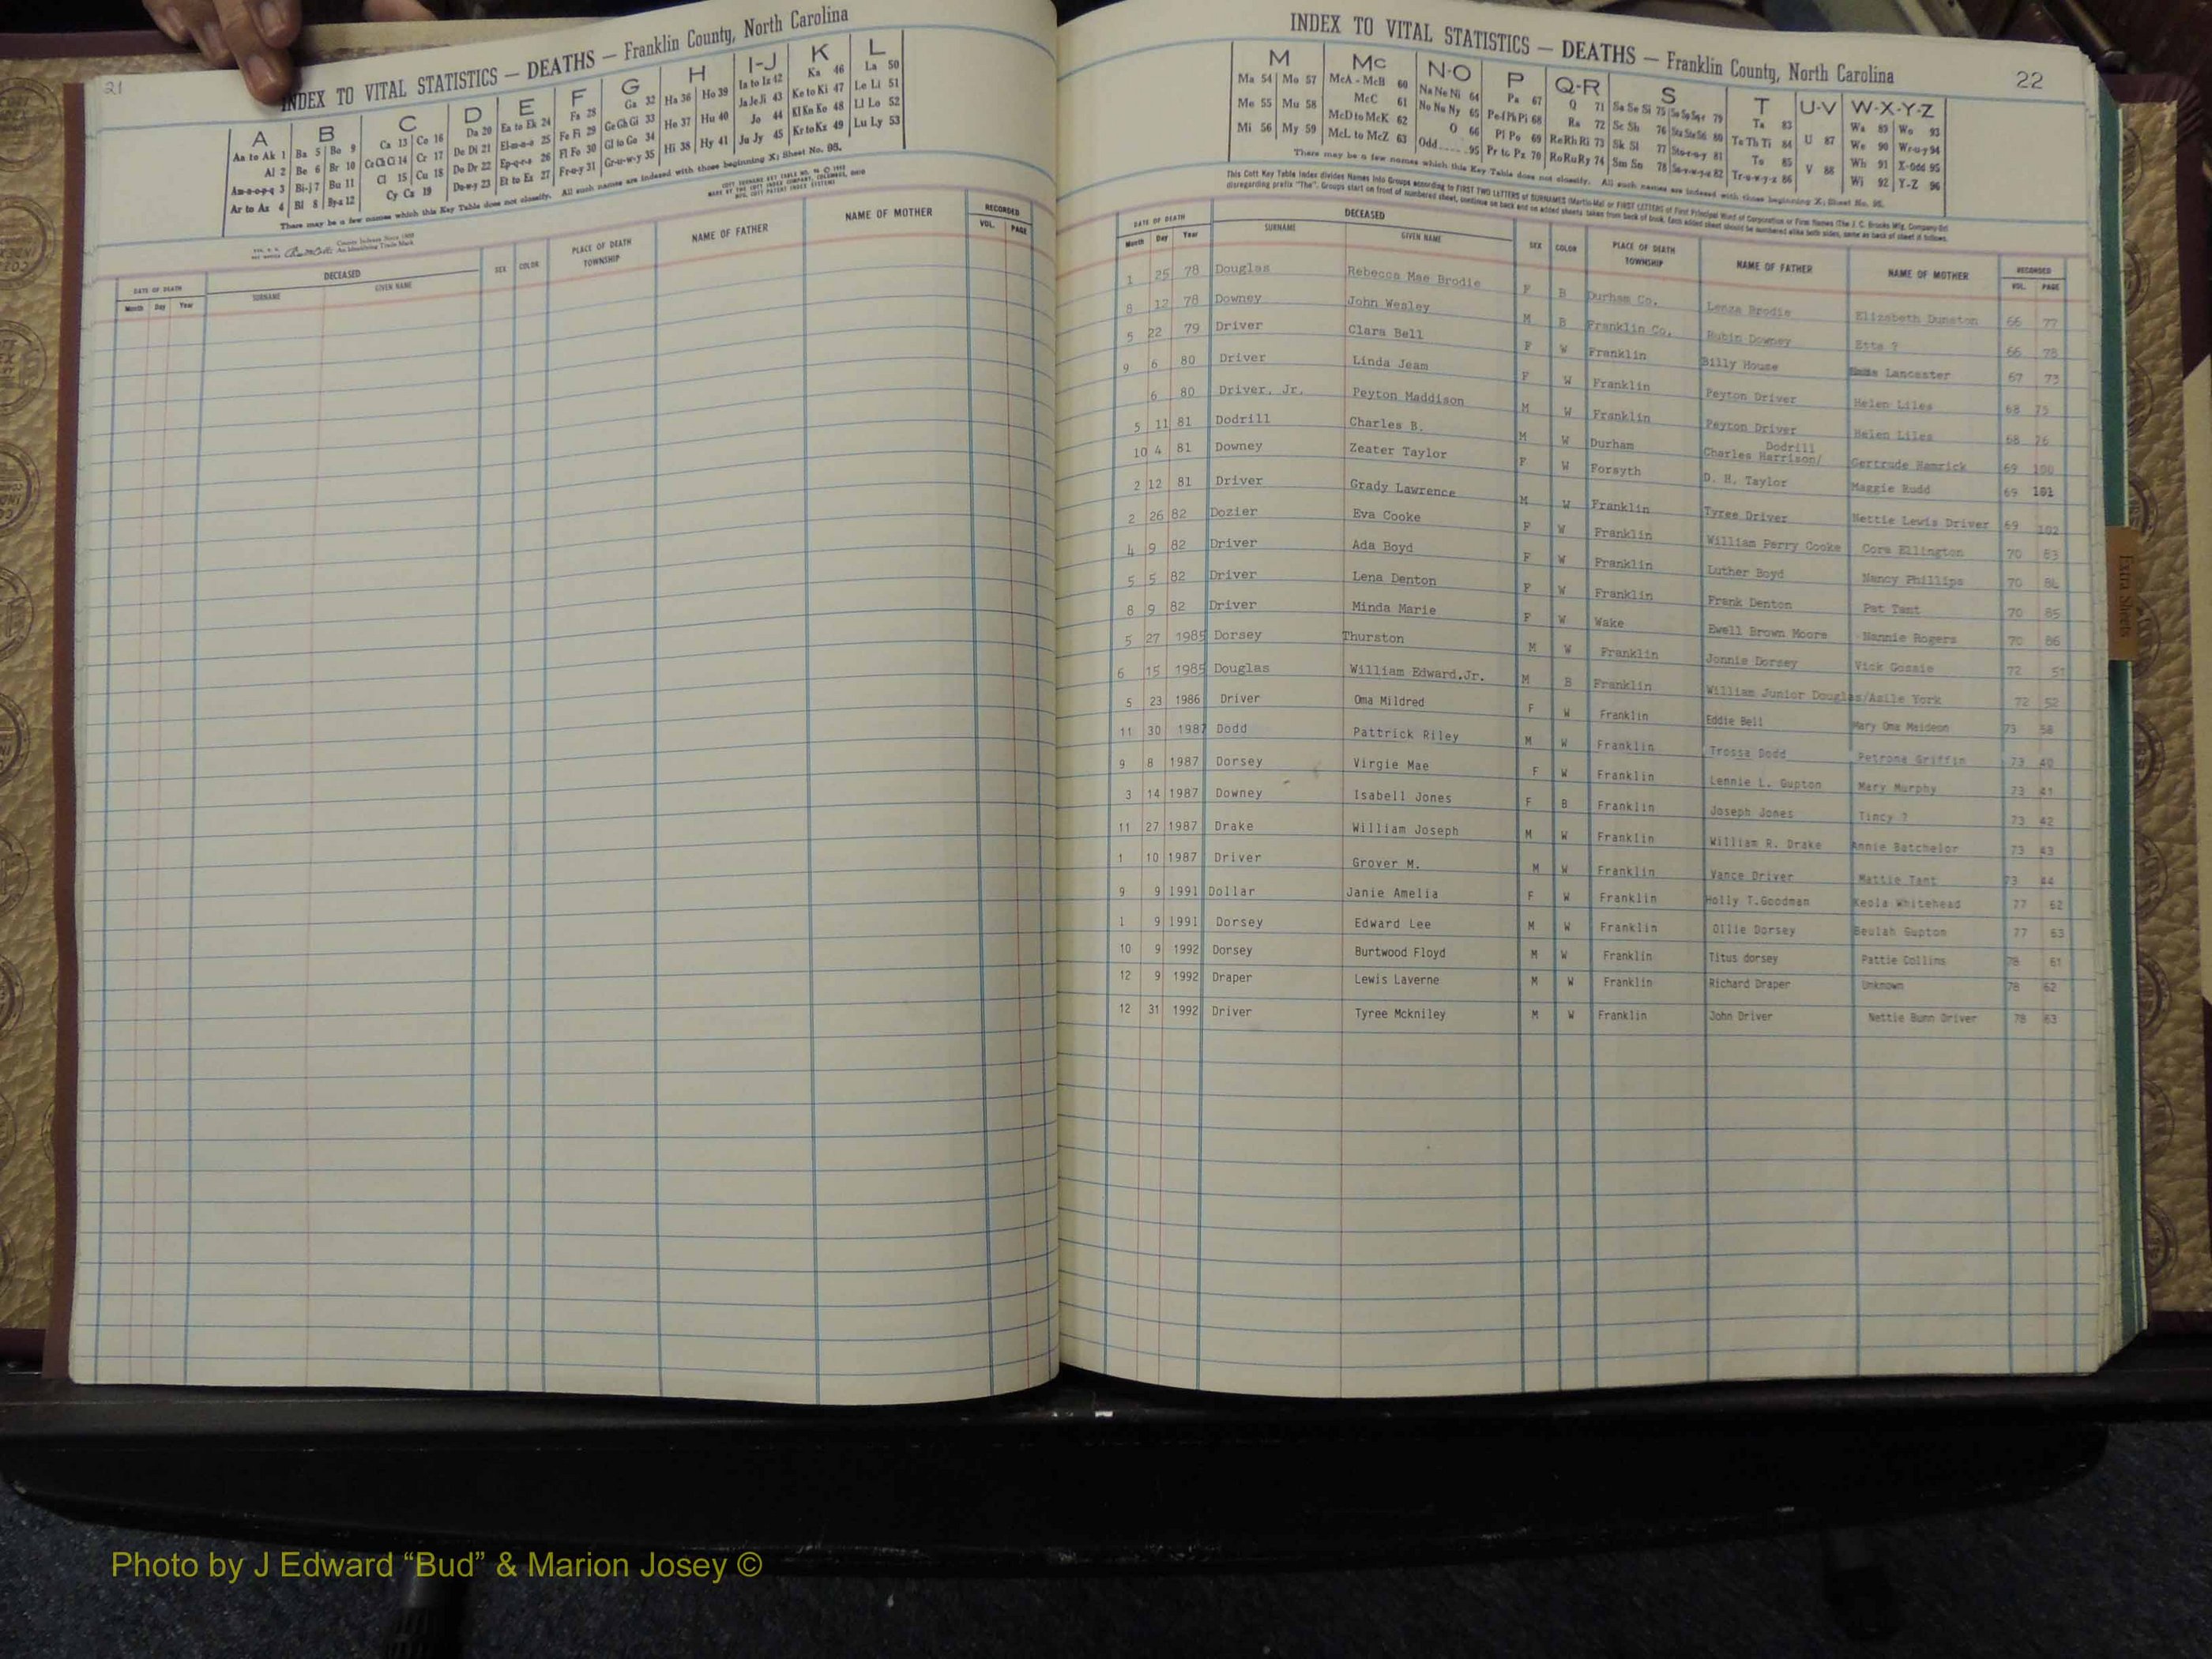 21
INDEX TO VITAL STATISTICS — DEATHS — Franklin County, North Carolina
A B C D E F G H I-J K L
Aa to Ak 1 Ba 5 Bo 9 Ca 13 Co 16 Da 20 Ea to Ek 24 Fa 28 Ga 32 Ha 36 Ho 39 Ia to Iz 42 Ka 46 La 50
Al 2 Be 6 Br 10 Ce Ch Ci 14 Cr 17 De Di 21 El-m-n-o 25 Fe Fi 29 Ge Gh Gi 33 He 37 Hu 40 Ja Je Ji 43 Ke to Ki 47 Le Li 51
Am-n-o-p-q 3 Bi-j 7 Bu 11 Cl 15 Cu 18 Do Dr 22 Ep-q-r-s 26 Fl Fo 30 Gl to Go 34 Hi 38 Hy 41 Jo 44 Kl Kn Ko 48 Ll Lo 52
Ar to Az 4 Bl 8 By-z 12 Cy Cz 19 Du-w-y 23 Et to Ez 27 Fr-u-y 31 Gr-u-w-y 35 Ju Jy 45 Kr to Kz 49 Lu Ly 53
There may be a few names which this Key Table does not classify. All such names are indexed with those beginning X; Sheet No. 95.
DATE OF DEATH DECEASED SEX COLOR PLACE OF DEATH TOWNSHIP NAME OF FATHER NAME OF MOTHER RECORDED
Month Day Year SURNAME GIVEN NAME VOL. PAGE
INDEX TO VITAL STATISTICS — DEATHS — Franklin County, North Carolina
22
M Mc N-O P Q-R S T U-V W-X-Y-Z
Ma 54 Mo 57 McA - McB 60 Na Ne Ni 64 Pa 67 Q 71 Sa Se Si 75 Ta 83 Wa 89 Wo 93
Me 55 Mu 58 McC 61 No Nu Ny 65 Pe Pf Ph Pi 68 Ra 72 Sc Sh 76 Te Th Ti 84 U 87 We 90 Wr-u-y 94
Mi 56 My 59 McD to McK 62 O 66 Pl Po 69 Re Rh Ri 73 Sk Sl 77 To 85 Wh 91 X-Odd 95
McL to McZ 63 Odd 95 Pr to Pz 70 Ro Ru Ry 74 Sm Sn 78 Tr-u-w-y-z 86 V 88 Wi 92 Y-Z 96
There may be a few names which this Key Table does not classify. All such names are indexed with those beginning X; Sheet No. 95.
This Cott Key Table Index divides Names into Groups according to FIRST TWO LETTERS of SURNAMES
DATE OF DEATH DECEASED SEX COLOR PLACE OF DEATH TOWNSHIP NAME OF FATHER NAME OF MOTHER RECORDED
Month Day Year SURNAME GIVEN NAME VOL. PAGE
1 25 78 Douglas Rebecca Mae Brodie F B Durham Co. Lenza Brodie Elizabeth Dunston 66 77
8 12 78 Downey John Wesley M B Franklin Co. Rubin Downey Etta ? 66 78
5 22 79 Driver Clara Bell F W Franklin Billy House Lancaster 67 73
9 6 80 Driver Linda Jeam F W Franklin Peyton Driver Helen Liles 68 75
6 80 Driver, Jr. Peyton Maddison M W Franklin Peyton Driver Helen Liles 68 76
5 11 81 Dodrill Charles B. M W Durham Charles Harrison/ Dodrill Gertrude Hamrick 69 100
10 4 81 Downey Zeater Taylor F W Forsyth D. H. Taylor Maggie Rudd 69 101
2 12 81 Driver Grady Lawrence M W Franklin Tyree Driver Nettie Lewis Driver 69 102
2 26 82 Dozier Eva Cooke F W Franklin William Perry Cooke Cora Ellington 70 83
4 9 82 Driver Ada Boyd F W Franklin Luther Boyd Nancy Phillips 70 84
5 5 82 Driver Lena Denton F W Franklin Frank Denton Pat Tant 70 85
8 9 82 Driver Minda Marie F W Wake Ewell Brown Moore Nannie Rogers 70 86
5 27 1985 Dorsey Thurston M W Franklin Jonnie Dorsey Vick Gossie 72 51
6 15 1985 Douglas William Edward,Jr. M B Franklin William Junior Douglas/Azile York 72 52
5 23 1986 Driver Oma Mildred F W Franklin Eddie Bell Mary Oma Maideon 73 58
11 30 1987 Dodd Pattrick Riley M W Franklin Trossa Dodd Petrona Griffin 73 40
9 8 1987 Dorsey Virgie Mae F W Franklin Lennie L. Gupton Mary Murphy 73 41
3 14 1987 Downey Isabell Jones F B Franklin Joseph Jones Tincy ? 73 42
11 27 1987 Drake William Joseph M W Franklin William R. Drake Annie Batchelor 73 43
1 10 1987 Driver Grover M. M W Franklin Vance Driver Mattie Tant 73 44
9 9 1991 Dollar Janie Amelia F W Franklin Holly T.Goodman Keola Whitehead 77 62
1 9 1991 Dorsey Edward Lee M W Franklin Ollie Dorsey Beulah Gupton 77 63
10 9 1992 Dorsey Burtwood Floyd M W Franklin Titus dorsey Pattie Collins 78 61
12 9 1992 Draper Lewis Laverne M W Franklin Richard Draper Unknown 78 62
12 31 1992 Driver Tyree Mckniley M W Franklin John Driver Nettie Bunn Driver 78 63
Extra Sheets
Photo by J Edward “Bud” & Marion Josey ©